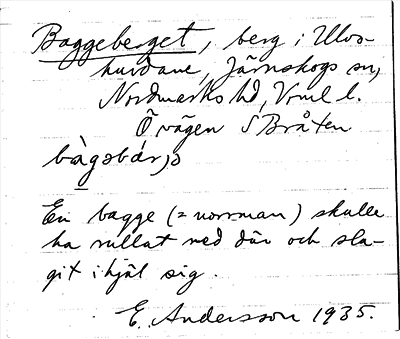 Baggeberget, berg i Ulvs-
hurdane, Järnskogs sn,
Nordmarks hd, Vrml l.
Ö vägen S Bråten
bàgəbár,jə
En bagge (= norrman) skulle
ha rullat ned där och sla-
git ihjäl sig.
E. Andersson 1935.